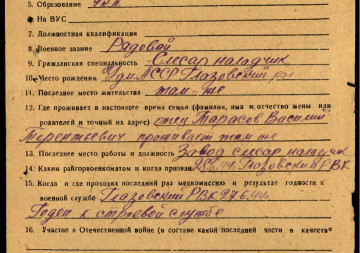 5. Образование 4 кл.
6. На ВУС
7. Должностная квалификация
8. Военное звание Рядовой
9. Гражданская специальность Слесар наладчик
10. Место рождения Удм.АССР Глазовский р-н
11. Последнее место жительства там-же
12. Где проживает в настоящее время семья (фамилия, имя и отчество жены или
родителей и точный их адрес) отец Тарасов Василий
Терентьевич проживает там же
13. Последнее место работы и должность Завод слесар наладчик
14. Каким райгорвоенкоматом и когда призван Глазовский РВК
15. Когда и где проходил последний раз медкомиссию и результат годности к
военной службе Глазовский РВК 27.6.44
Годен к строевой службе
16. Участие в Отечественной войне (в составе какой последней части в качестве